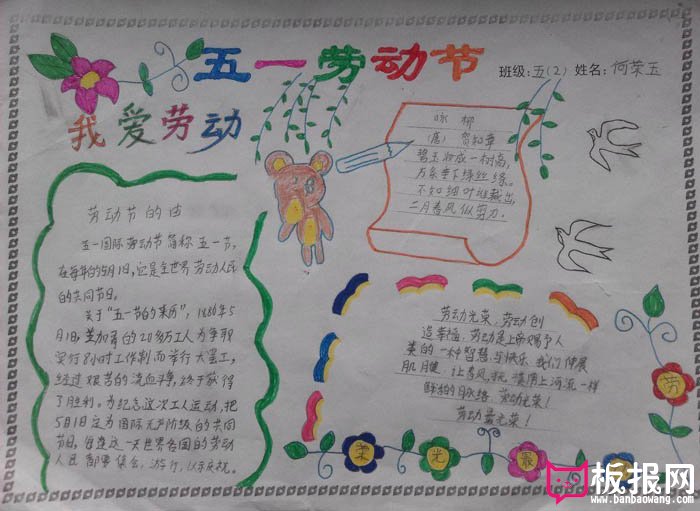 五一劳动节
班级:五(2) 姓名:何荣玉
我爱劳动
咏柳
(唐) 贺知章
碧玉妆成一树高,
万条垂下绿丝绦。
不知细叶谁裁出,
二月春风似剪刀。
劳动节的由
五一国际劳动节简称五一节,
在每年的5月1日,它是全世界劳动人民
的共同节日。
关于“五一节的来历”,1886年5
月1日,芝加哥的20多万工人为争取
实行8小时工作制而举行大罢工,
经过艰苦的流血斗争,终于获得
了胜利。为纪念这次工人运动,把
5月1日定为国际无产阶级的共同
节日,每逢这一天世界各国的劳动
人民都要集会,游行,以示庆祝。
劳动光荣、劳动创
造幸福,劳动是上帝赐予人
类的一种智慧与快乐 我们伸展
肌腱,让春风抚 摸肩上河流一样
酥松的脉络,劳动光荣!
劳动最光荣!
劳
最
光
荣
板报网
www.banbaowang.com